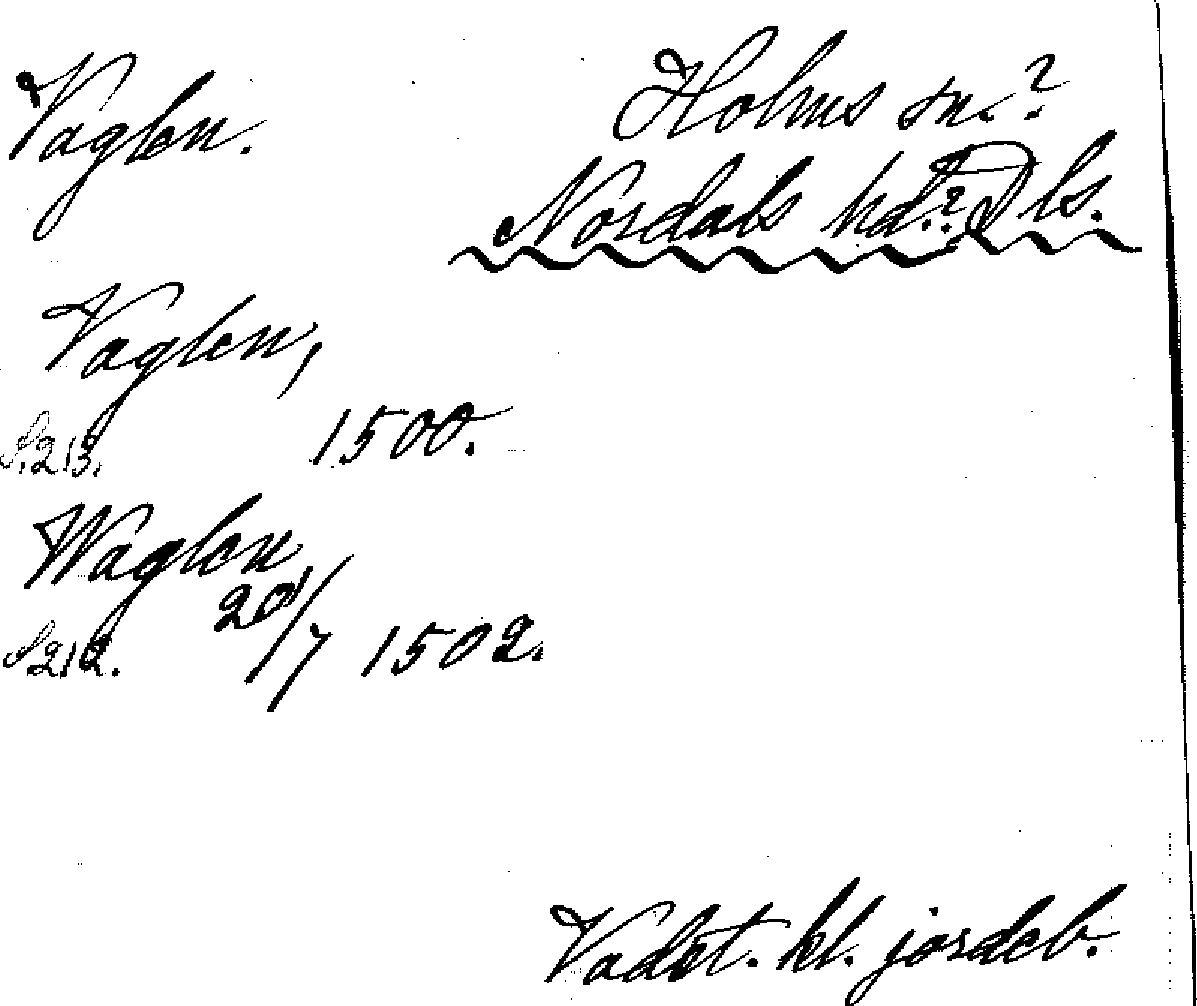 Vaglen. Holms sn.?
Nordals hd.? Dls.
Vaglen,
S. 213. 1500.
Waglen
S. 212. 20/7 1502.
Vadst. kl. jordeb.